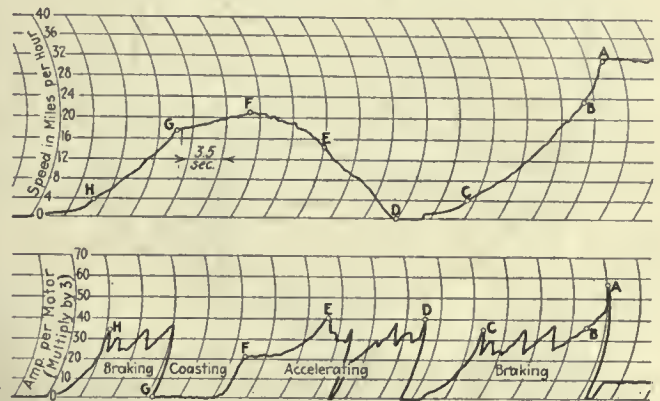 Speed in Miles per Hour
40
36
32
28
24
20
16
12
8
4
0
A
B
C
D
E
F
G
H
3.5
sec.
Amp. per Motor
(Multiply by 3)
70
60
50
40
30
20
10
0
H
G
F
E
D
C
B
A
Braking
Coasting
Accelerating
Braking